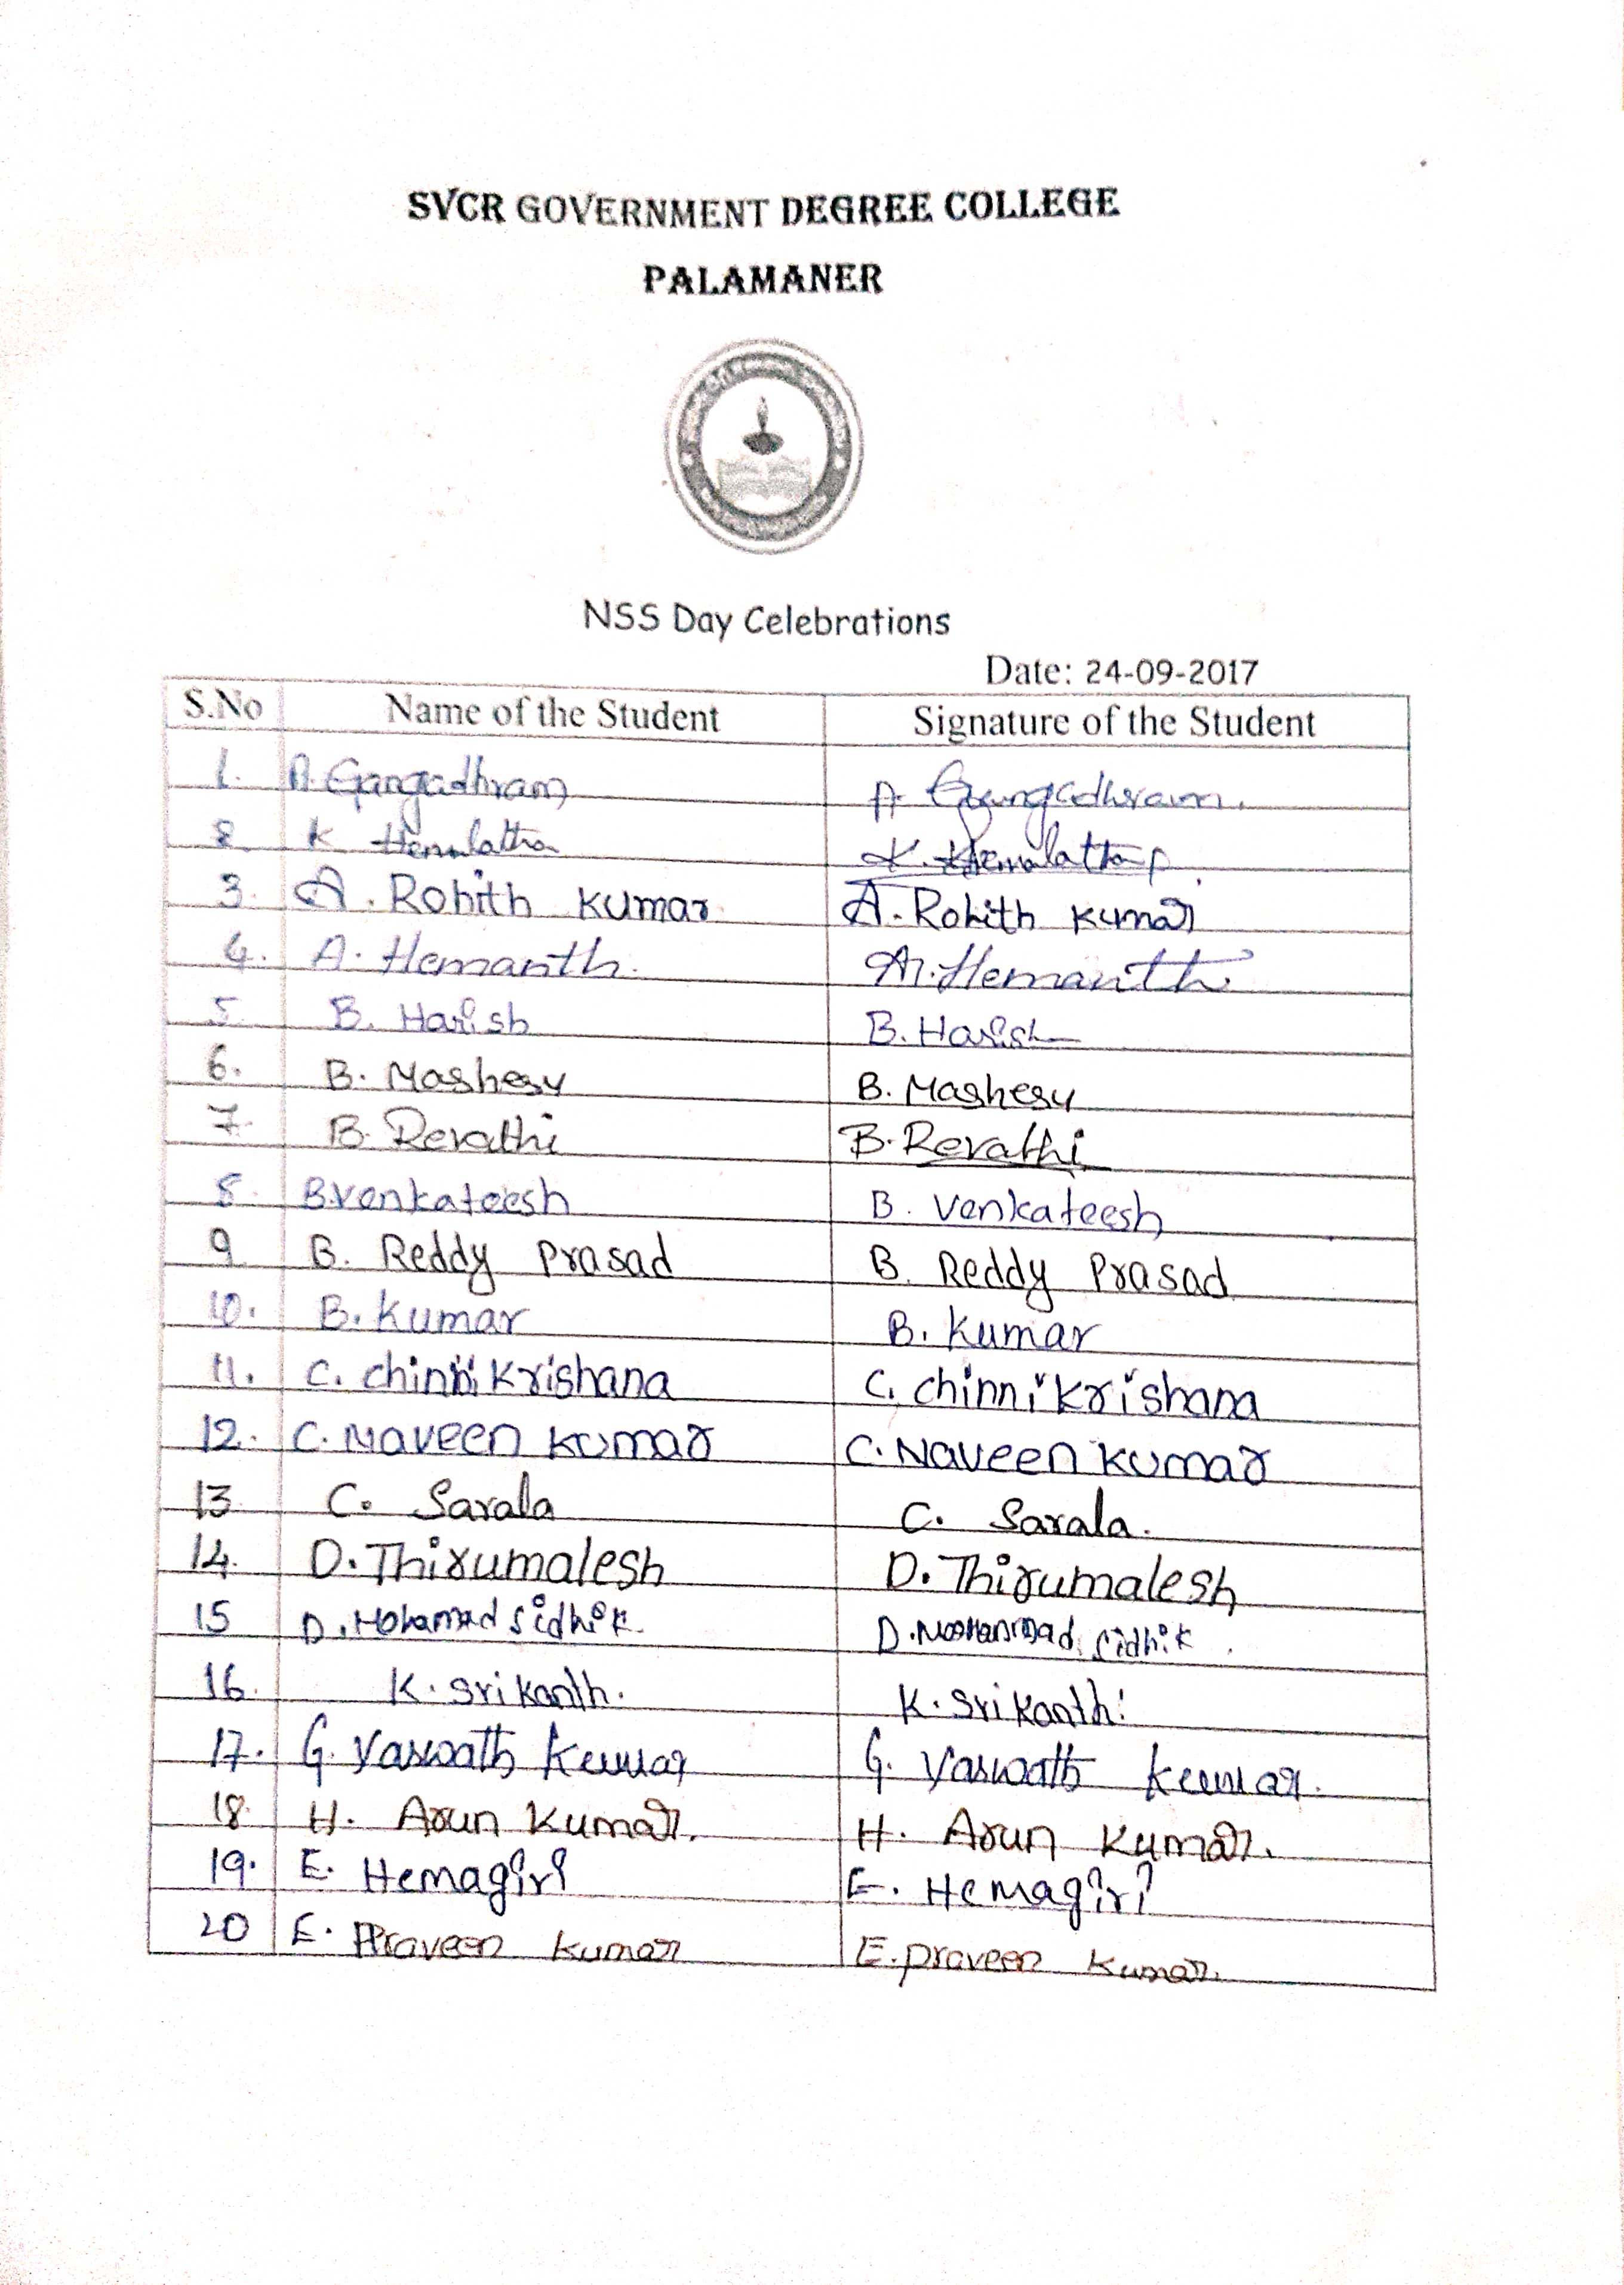 SVCR GOVERNMENT DEGREE COLLEGE
PALAMANER
NSS Day Celebrations
Date: 24-09-2017
S.No Name of the Student Signature of the Student
1. A. Gangadhram A. Gangadhram.
2 K Hemalatha K. Hemalatha
3. A. Rohith Kumar A. Rohith Kumar
4. A. Hemanth. A. Hemanth.
5 B. Harish B. Harish
6. B. Mashesy B. Mashesy
7. B. Revathi B. Revathi
8. B.venkateesh B. venkateesh
9 B. Reddy Prasad B. Reddy Prasad
10. B. Kumar B. Kumar
11. C. chinni Krishana C. chinni Krishana
12. C. Naveen Kumar C. Naveen Kumar
13 C. Sarala C. Sarala.
14. D. Thirumalesh D. Thirumalesh
15 D. Mohammad Sidhik. D. Sidhik.
16. K. Srikanth. K. Srikanth.
17. G. Yaswath Kumar G. Yaswath Kumar.
18. H. Arun Kumar. H. Arun Kumar.
19. E. Hemagiri E. Hemagiri
20 E. Praveen Kumar E. praveen Kumar.